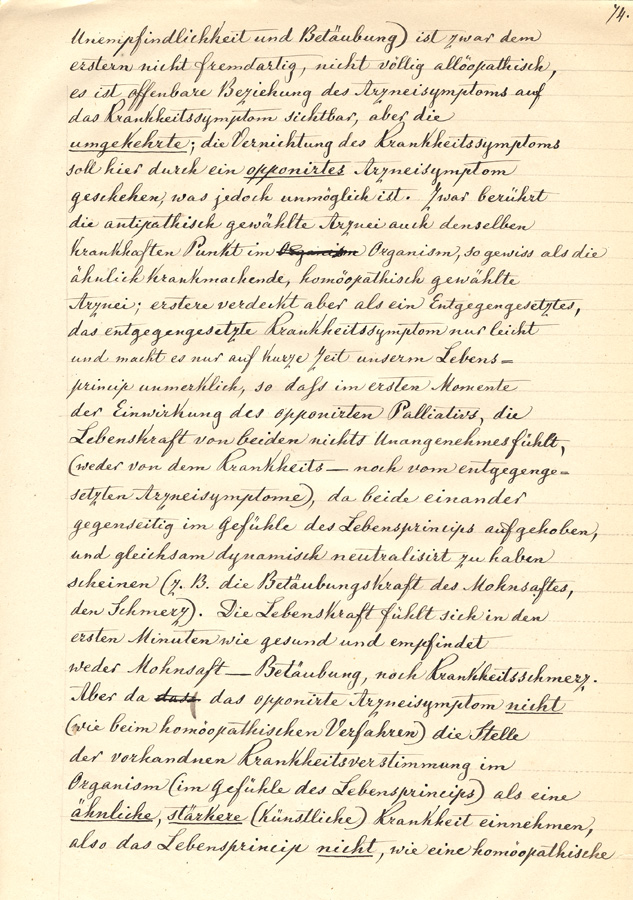 74.
Unempfindlichkeit und Betäubung) ist zwar dem
erstern nicht fremdartig, nicht völlig allöopathisch,
es ist offenbare Beziehung des Arzneisymptoms auf
das Krankheitssymptom sichtbar, aber die
umgekehrte; die Vernichtung des Krankheitssymptoms
soll hier durch ein opponirtes Arzneisymptom
geschehen, was jedoch unmöglich ist. Zwar berührt
die antipathisch gewählte Arznei auch denselben
krankhaften Punkt im Organism Organism, so gewiss als die
ähnlich krankmachende, homöopathisch gewählte
Arznei; erstere verdeckt aber als ein Entgegengesetztes,
das entgegengesetzte Krankheitssymptom nur leicht
und macht es nur auf kurze Zeit unserm Lebens=
princip unmerklich, so dafs im ersten Momente
der Einwirkung des opponirten Palliativs, die
Lebenskraft von beiden nichts Unangenehmes fühlt,
(weder von dem Krankheits- noch vom entgegenge=
setzten Arzneisymptome), da beide einander
gegenseitig im Gefühle des Lebensprincips aufgehoben,
und gleichsam dynamisch neutralisirt zu haben
scheinen (z. B. die Betäubungskraft des Mohnsaftes,
den Schmerz). Die Lebenskraft fühlt sich in den
ersten Minuten wie gesund und empfindet
weder Mohnsaft-Betäubung, noch Krankheitsschmerz.
Aber da dass das opponirte Arzneisymptom nicht
(wie beim homöopathischen Verfahren) die Stelle
der vorhandnen Krankheitsverstimmung im
Organism (im Gefühle des Lebensprincips) als eine
ähnliche, stärkere (künstliche) Krankheit einnehmen,
also das Lebensprincip nicht, wie eine homöopathische